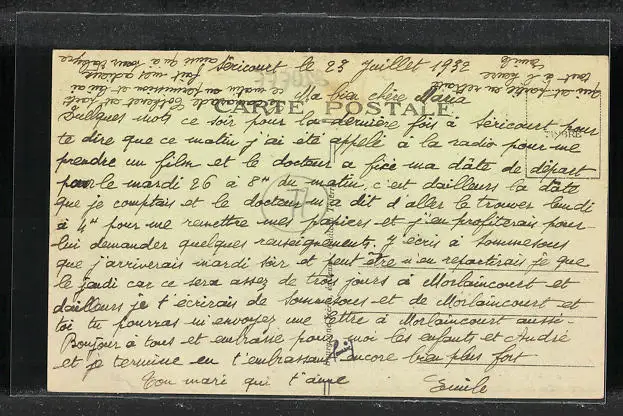 Séricourt le 23 Juillet 1932
Ma bien chère Maria
CARTE POSTALE
Quelques mots ce soir pour la dernière fois à Séricourt pour
te dire que ce matin j'ai été appelé à la radio pour me
prendre un film et le docteur a fixé ma dâte de départ
pour le mardi 26 à 8h du matin, c'est dailleurs la dâte
que je comptais et le docteur m'a dit d'aller le trouver lundi
à 4h pour me remettre mes papiers et j'en profiterais pour
lui demander quelques renseignements. j'écris à Sommesous
que j'arriverais mardi soir et peut être n'en repartirais je que
le jeudi car ce sera assez de trois jours à Morlaincourt et
dailleurs je t'écrirais de Sommesous et de Morlaincourt et
toi tu pourras m'envoyez une lettre à Morlaincourt aussi.
Bonjour à tous et embrasse pour moi les enfants et André
et je termine en t'embrassant encore bien plus fort
Ton mari qui t'aime
Emile
qui est partie en retraite
tout à l'heure
Emile
ce matin en permission et qui a
fait ses adieux
ainsi qu'à